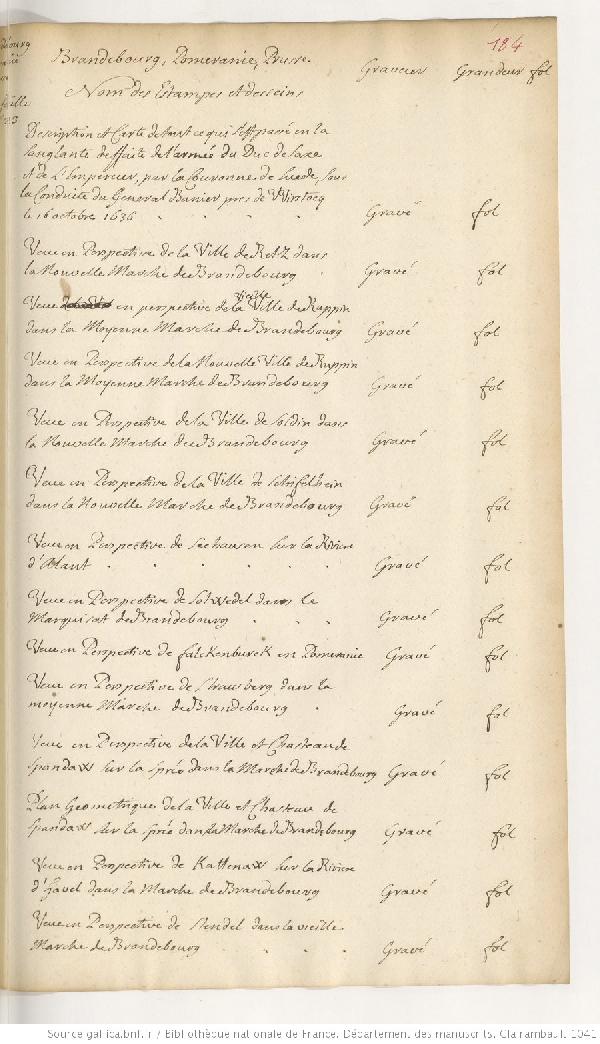 184
Brandebourg, Pomeranie, Prusse.
Graveur Grandeur fol
Nom des Estampes et desseins
Description et Carte de tout ce qui s'est passé en la
sanglante deffaite de l'armée du Duc de Saxe
et de L'Empereur, par la Couronne de Suede, sous
la Conduite du General Banier pres de Wintocq
le 16 octobre 1636 Gravé fol
Veue en Perspective de la Ville de Retz dans
la Nouvelle Marche de Brandebourg Gravé fol
vieille
Veue en perspective de la Ville de Ruppin
dans la Moyenne Marche de Brandebourg Gravé fol
Veue en Perspective de la Nouvelle Ville de Ruppin
dans la Moyenne Marche de Brandebourg Gravé fol
Veue en Perspective de la Ville de Soldin dans
la Nouvelle Marche de Brandebourg Gravé fol
Veue en Perspective de la Ville de Schifelbein
dans la Nouvelle Marche de Brandebourg Gravé fol
Veue en Perspective de Seehausen sur la Riviere
d'Alant Gravé fol
Veue en Perspective de Solwedel dans le
Marquisat de Brandebourg Gravé fol
Veue en Perspective de falckenburck en Pomeranie Gravé fol
Veue en Perspective de Strausberg dans la
moyenne Marche de Brandebourg Gravé fol
Veue en Perspective de la Ville et Chasteau de
Spandaw sur la Sprée dans la Marche de Brandebourg Gravé fol
Plan Geometrique de la Ville et Chasteau de
Spandaw sur la Sprée dans la Marche de Brandebourg Gravé fol
Veue en Perspective de Rattenaw sur la Riviere
d'Havel dans la Marche de Brandebourg Gravé fol
Veue en Perspective de Stendel dans la vieille
Marche de Brandebourg Gravé fol
Source gallica.bnf.fr / Bibliothèque nationale de France. Département des manuscrits. Clairambault 1041